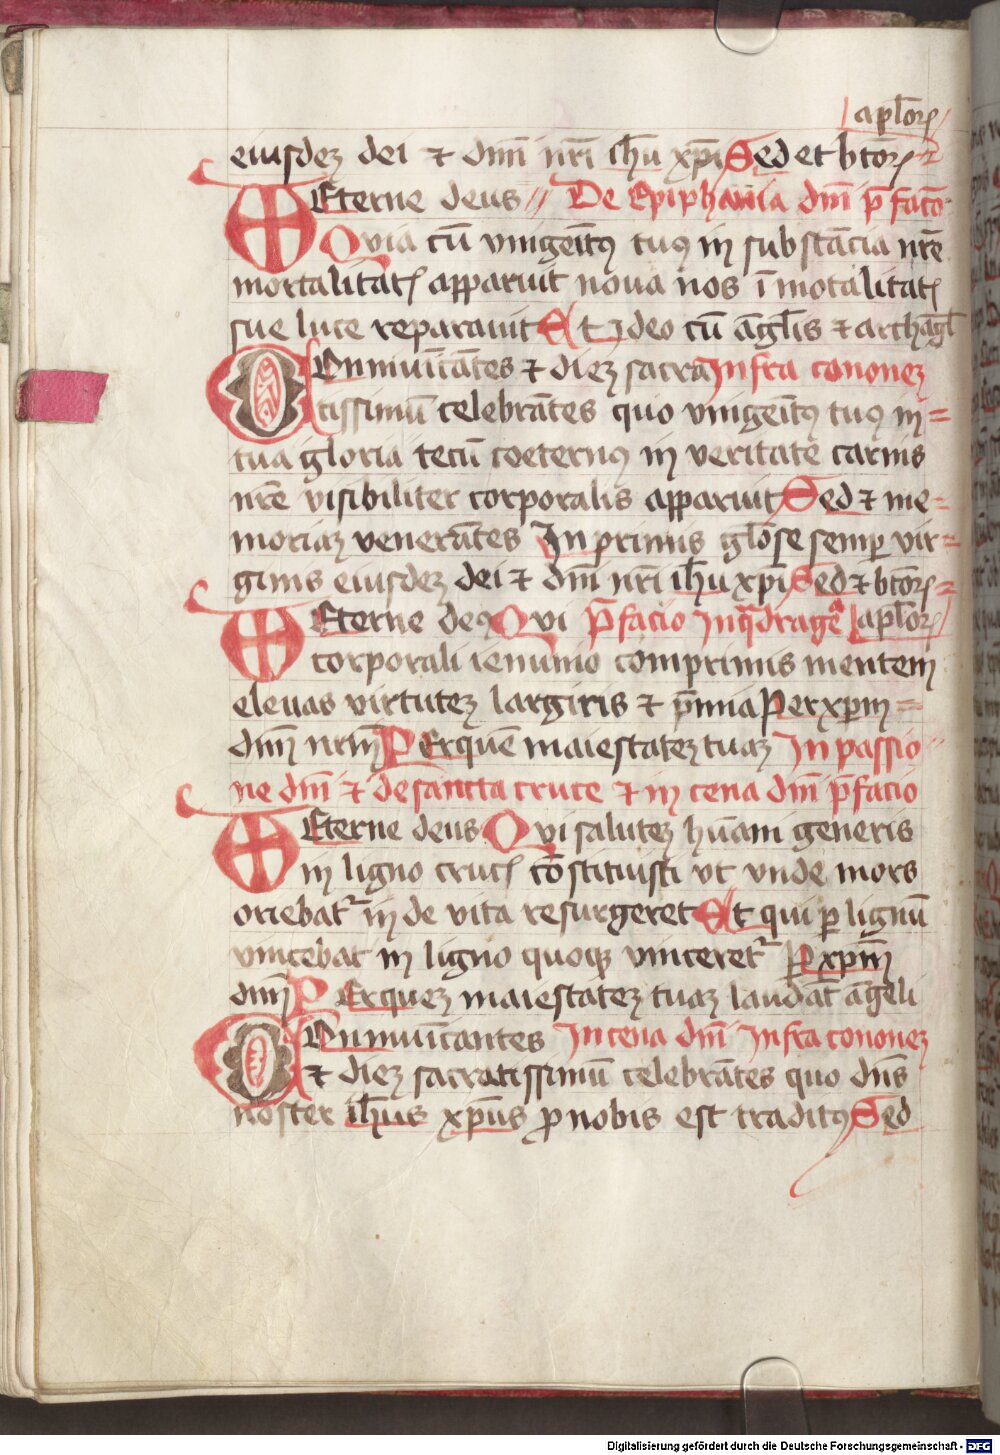 apl̄oꝝ
eiusdeꝫ dei ⁊ dn̄i nr̄i ih̄u xp̄i Sed et btōꝝ
Eterne deus De Epiphania dn̄i p̄facō
Quia cū vnigeīt9 tu9 in substācia nr̄e
mortalitatꝭ apparuit noua nos īmotalitatꝭ
sue luce reparauit Et ideo cū āgl̄is ⁊ archāgl̄
Cōmuīcātes ⁊ dieꝫ sacra Infra cononeꝫ
tissimū celebrātes quo vnigeīt9 tu9 in
tua gloria tecū coetern9 in veritate carnis
nr̄e visibiliter corporalis apparuit Sed ⁊ me-
moriaꝫ venerātes In primis glōse semꝑ vir-
ginis eiusdeꝫ dei ⁊ dn̄i nr̄i ih̄u xp̄i Sed ⁊ btōꝝ
Eterne de9 Qui p̄facio In qͣdrageͣ apl̄oꝝ
corporali ieiunio comprimis mentem
eleuas virtuteꝫ largiris ⁊ p̄mia Per xp̄m
dnm̄ nrm̄ Per quem maiestateꝫ tuaꝫ In passio
ne dn̄i ⁊ de sancta cruce ⁊ in cena dn̄i p̄facio
Eterne deus Qui saluteꝫ hūani generis
in ligno crucꝭ cōstituisti vt vnde mors
oriebatˀ inde vita resurgeret Et qui ꝑ lignū
vincebat in ligno quoqꝫ vinceretˀ ꝑ xp̄m
dnm̄ Per queꝫ maiestateꝫ tuaꝫ laudāt āgeli
Cōmuīcantes In cena dn̄i Infra cononeꝫ
⁊ dieꝫ sacratissimū celebrātes quo dn̄s
noster ih̄us xp̄us ꝓ nobis est tradit9 Sed
Digitalisierung gefördert durch die Deutsche Forschungsgemeinschaft - DFG